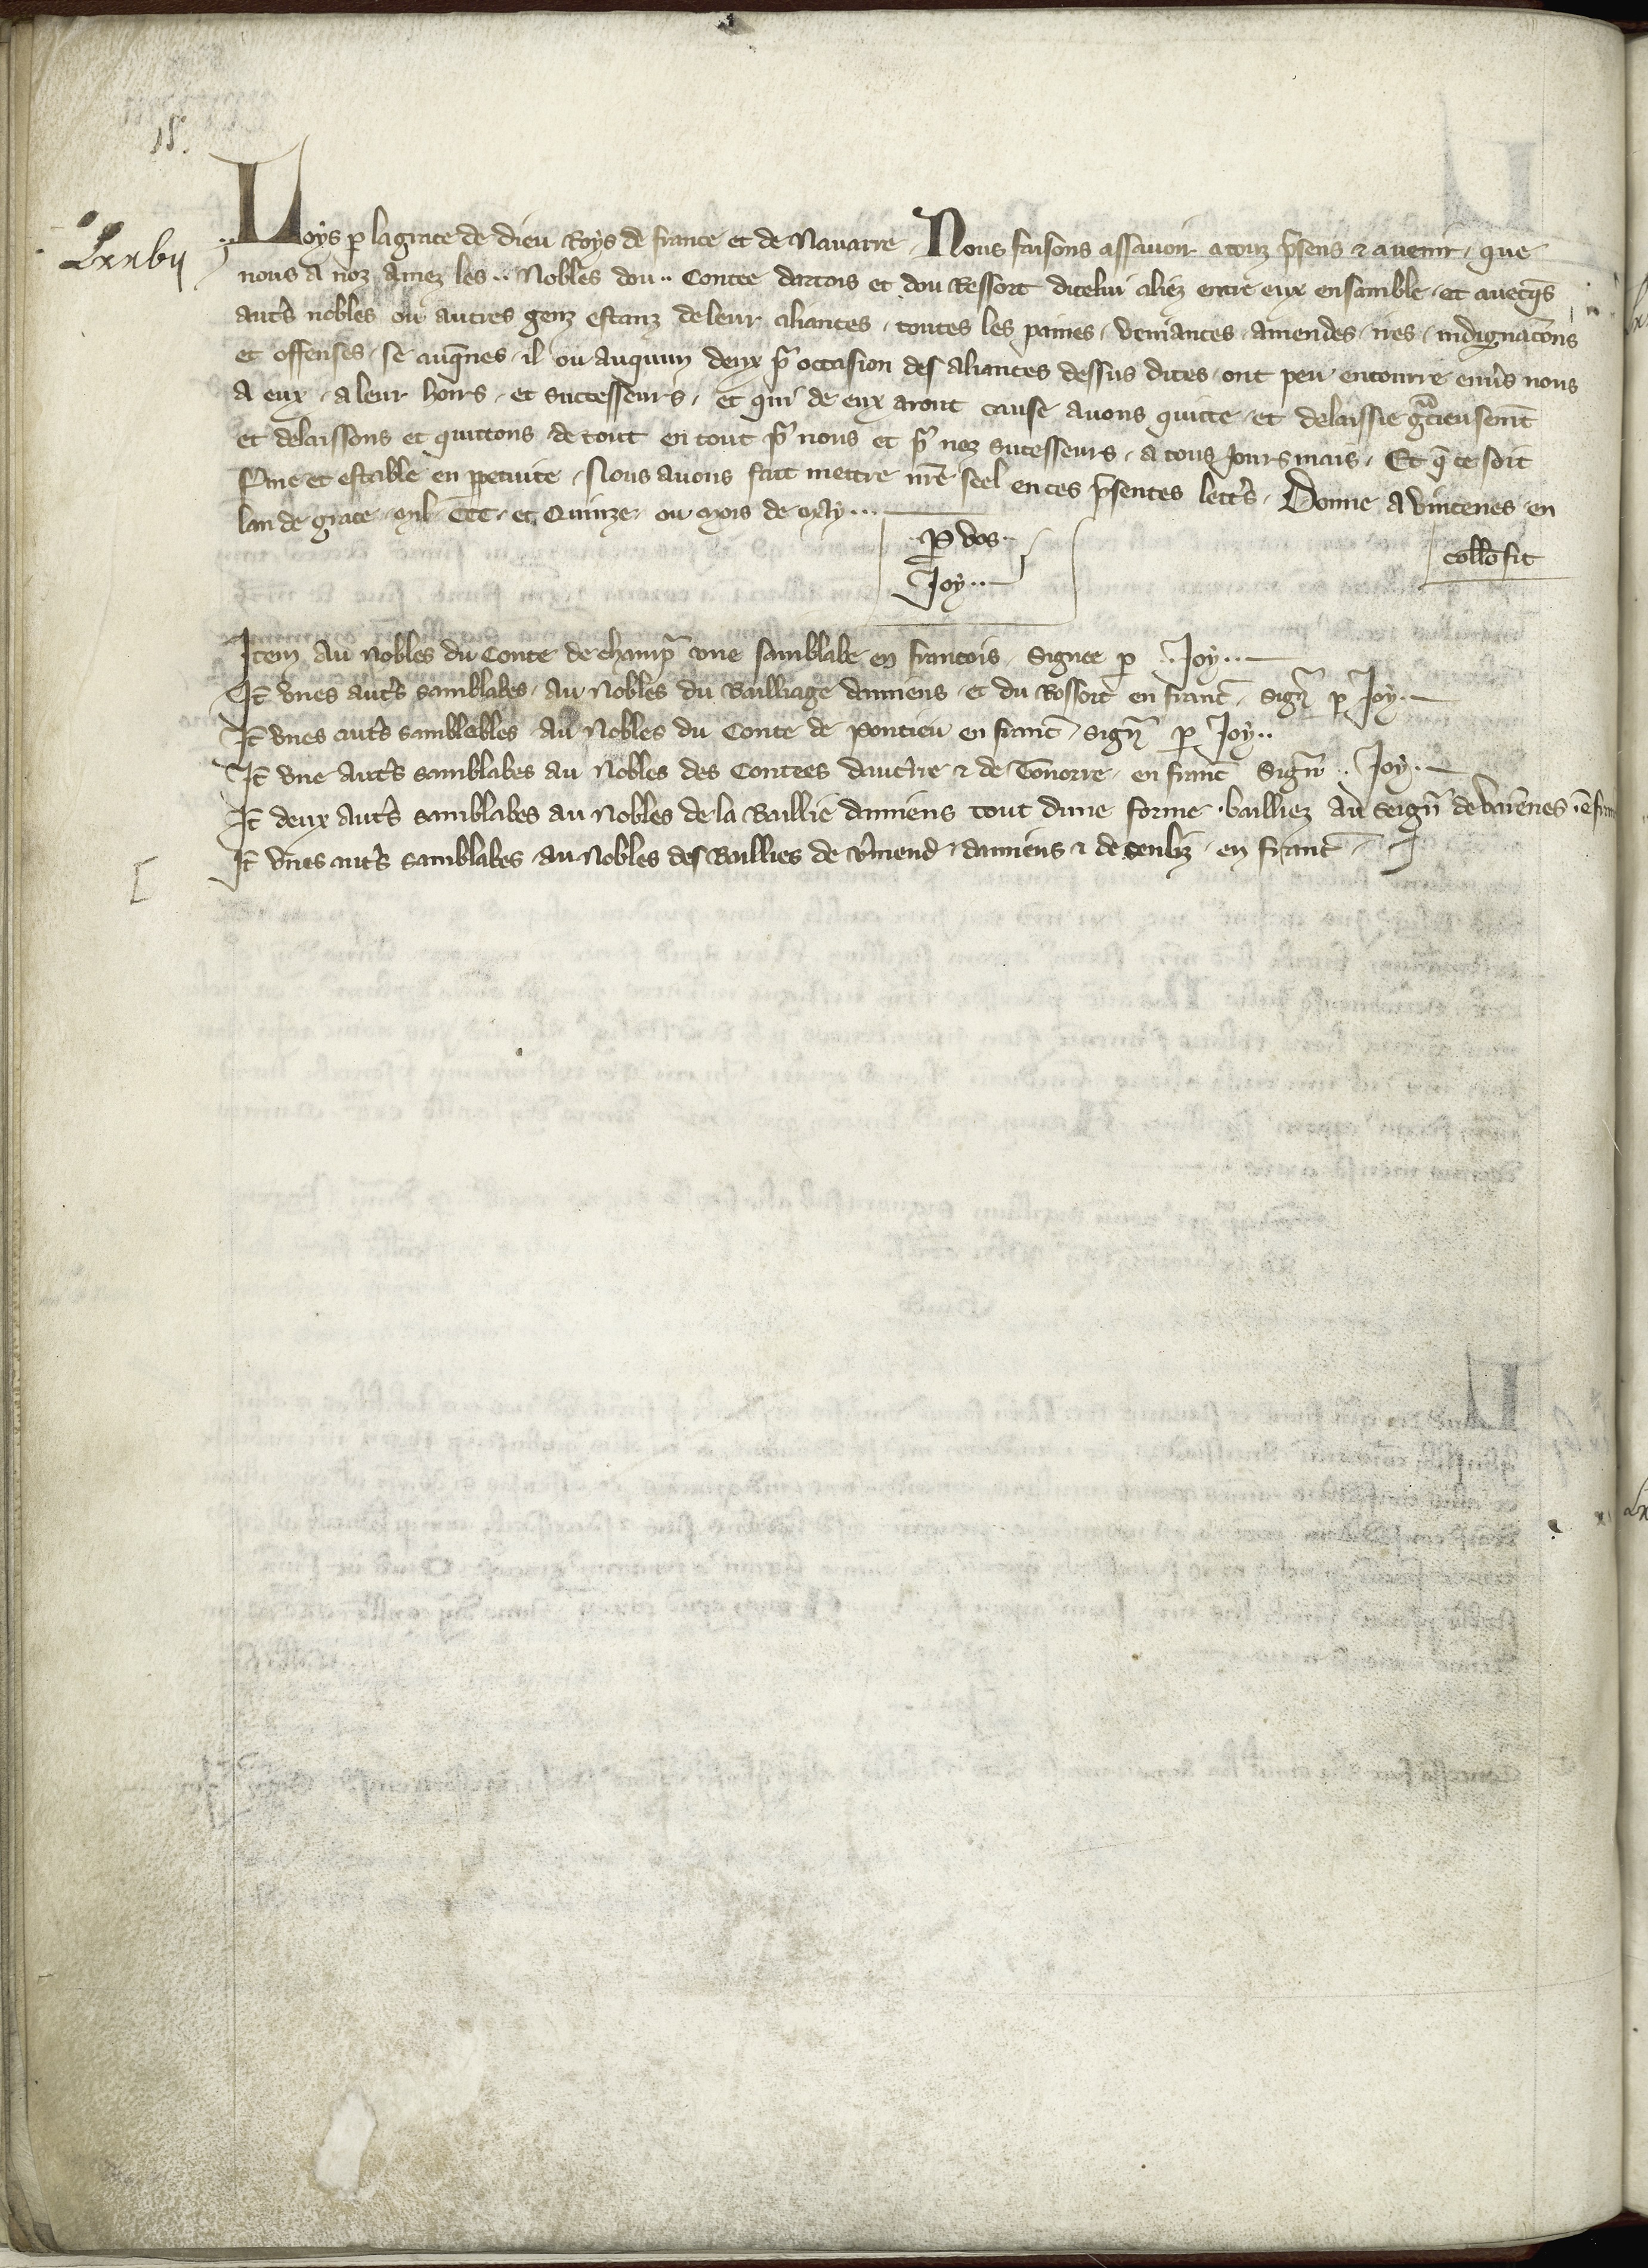 18.
Lxxvij
Loys p la grace de dieu Roys de france et de Nauarre. Nous faisons assauoir a touz p̃sens ⁊ a uenir, que
nous a noz amez les .. Nobles dou .. Contee dartois et dou Ressort dicelui aliez entre eux ensamble, et auecq̃s
aut̃s nobles ou autres genz estanz de leur aliances, toutes les paines, veniances, amendes, ires, indignac̃ons
et offenses, se auq̃nes, il ou auquun deux p̃ occasion des aliances dessus dites, ont peu encourre enũs nous
A eux, a leur hoirs, et successeurs, et qui de eux aront cause auons quitte, et delaissie g̃cieusem̃t
et delaissons et quittons de tout en tout p̃ nous et p̃ noz successeurs, a tous Jours mais, Et q̃ ce soit
ferme et estable en ppetuite, Nous auons fait mettre nr̃e seel en ces p̃sentes lett̃s, Donne a vincenes en
lan de grace mil CCC et Quinze ou mois de May...
P vos
Joy...
coll̃o fit
Item au Nobles du Conte de champ̃ vne samblabe en francois, Signee p ..Joy...
It̃ vnes aut̃s samblabes, au Nobles du Bailliage damiens et du Ressort en franc̃, Sig̃ p Joy.
It̃ vnes aut̃s samblables au Nobles du Conte de Pontieu en franc̃, Sig̃ p Joy..
It̃ vne aut̃s samblabes au Nobles des Contees daucr̃re ⁊ de Tonorre, en franc̃ Sign̄ .. Joy.
It̃ deux aut̃s samblabes au Nobles de la Baillie damiens tout dune forme, bailliez au seign̄
It̃ vnes aut̃s samblabes au Nobles des Baillies de v̾mend, damiens ⁊ de senliz, en franc̃